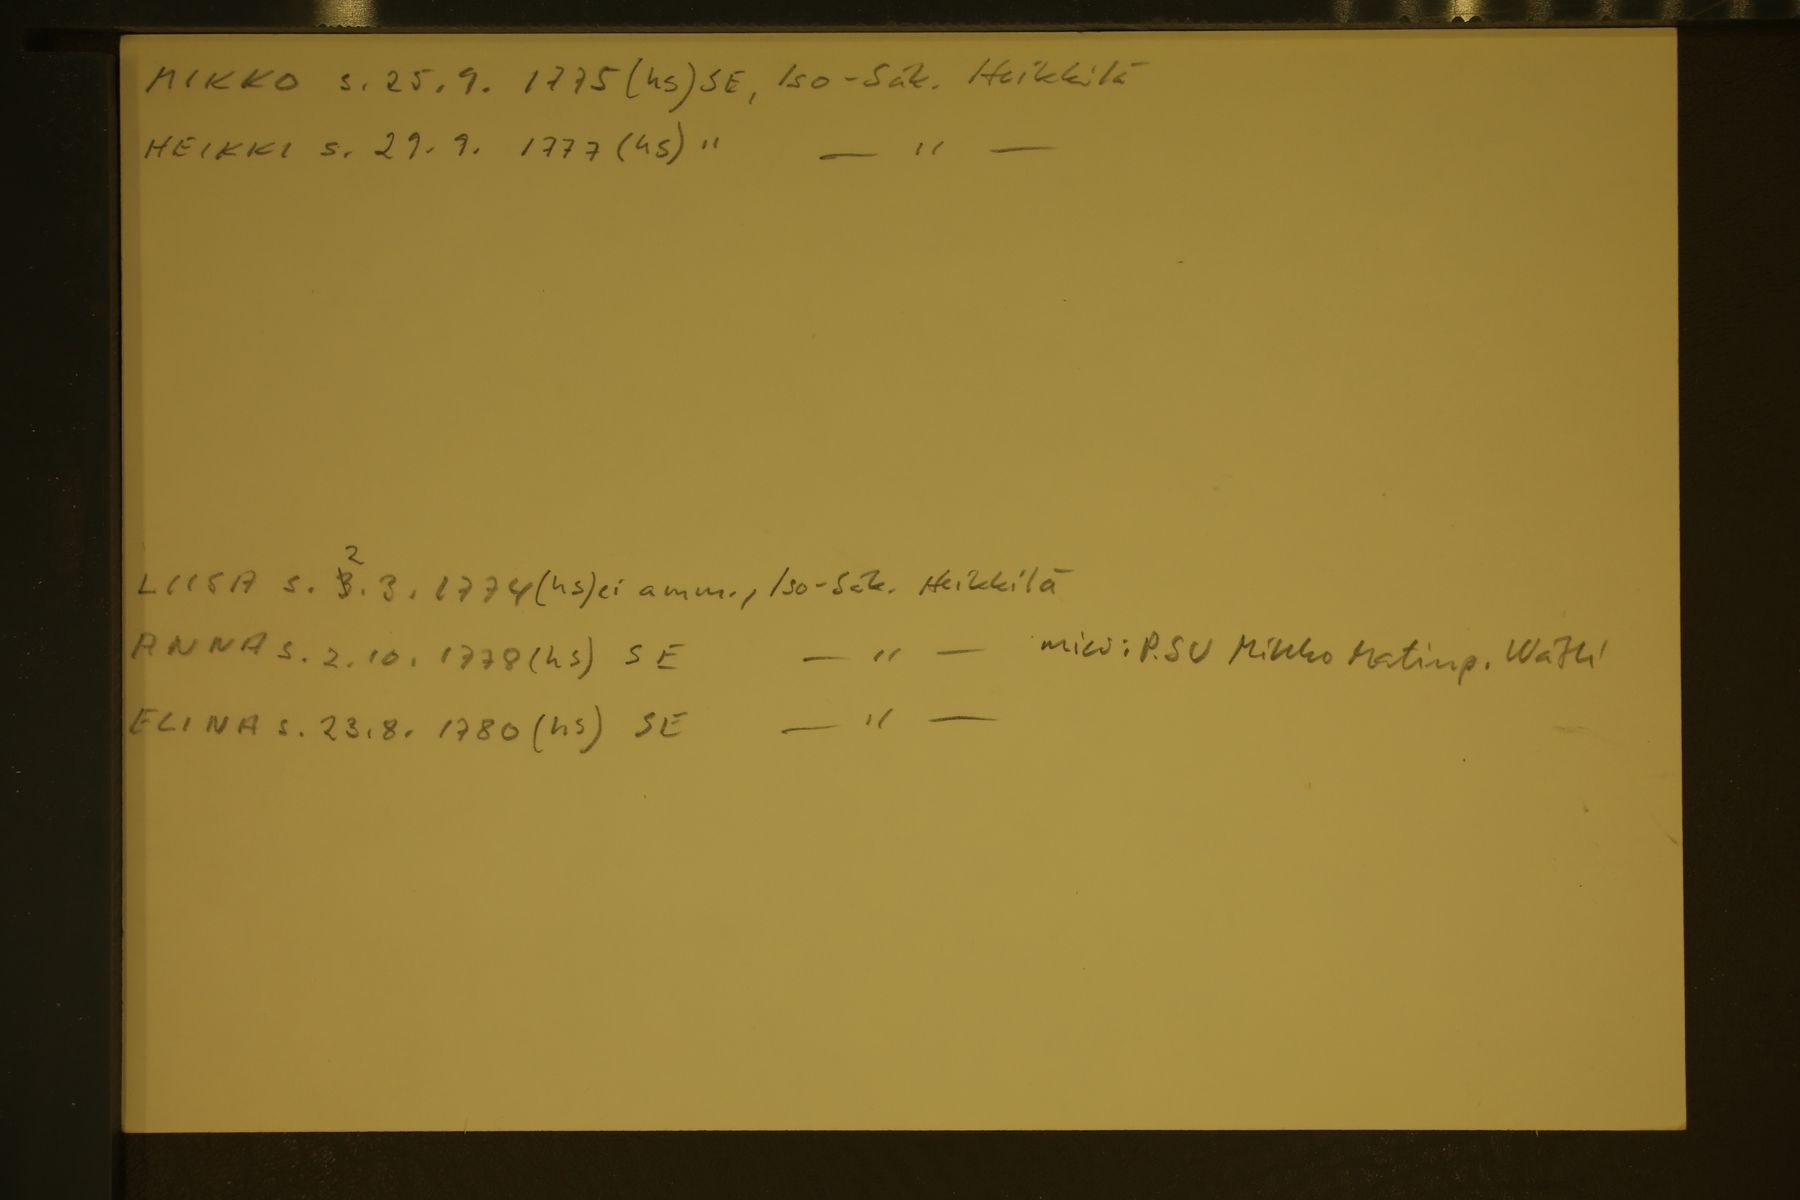 MIKKO s. 25.9. 1775 (hs) SE, Iso-Säk. Heikkilä
HEIKKI s. 29.9. 1777 (hs) " — " —
2
LIISA s. 3.3. 1774 (hs) ei amm., Iso-Säk. Heikkilä
ANNA s. 2.10. 1778 (hs) SE — " — P.SU Mikko Matinp.
ELINA s. 23.8. 1780 (hs) SE — " —